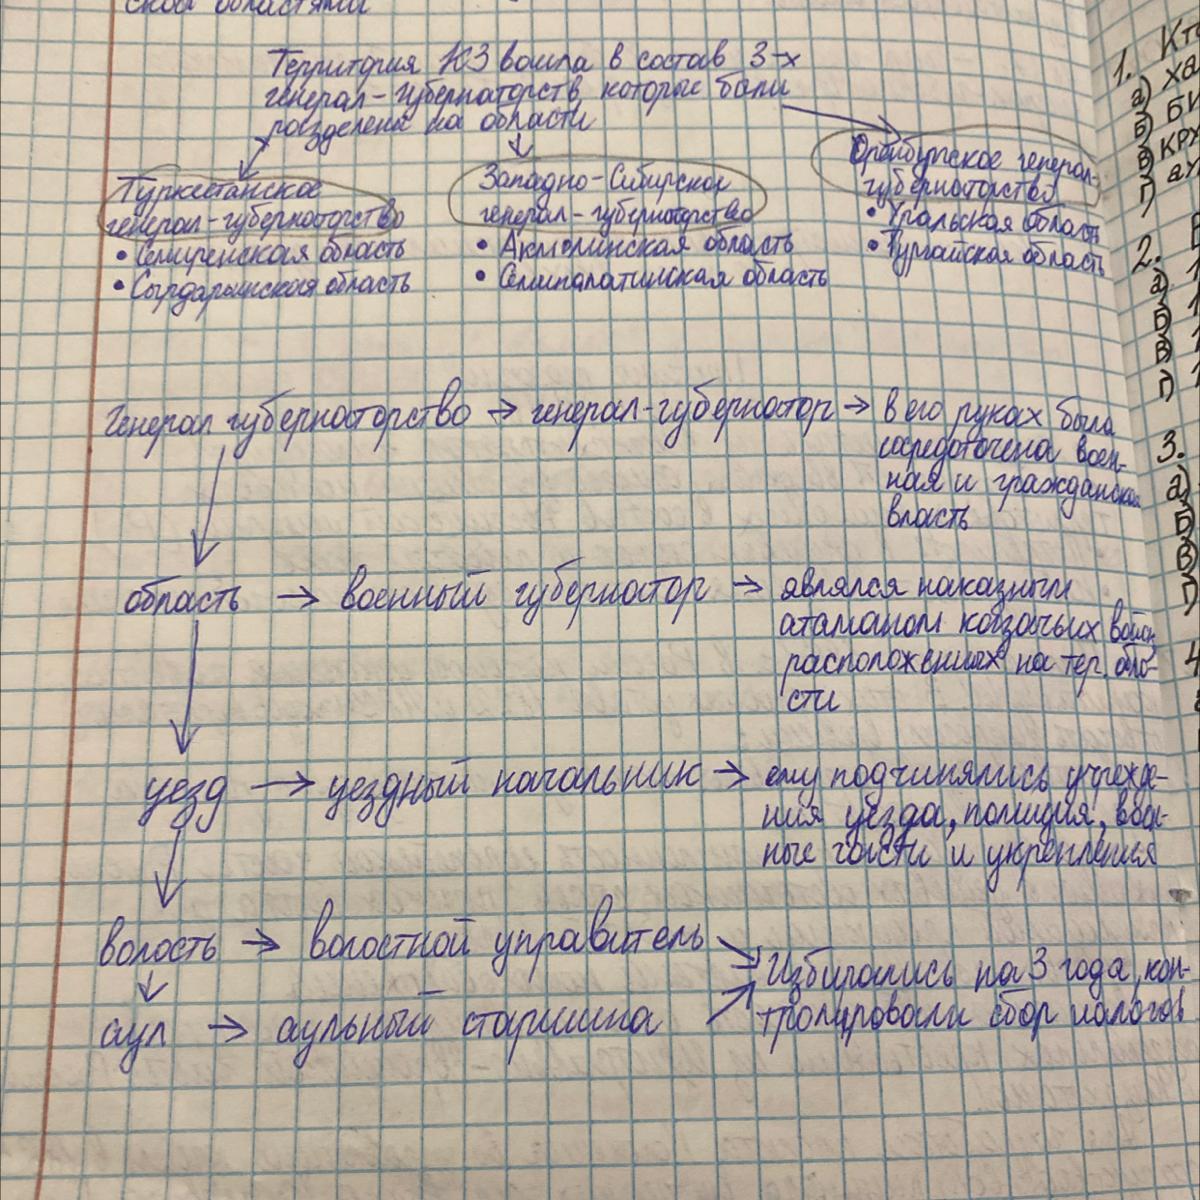 ской областями
Территория КЗ вошла в состав 3-х
генерал-губернаторств которые были
разделены на области
Туркестанское
генерал-губернаторство
• Семиреченская область
• Сырдарьинская область
Западно-Сибирское
генерал-губернаторство
• Акмолинская область
• Семипалатинская область
Оренбургское генерал-
губернаторство
• Уральская область
• Тургайская область
Генерал губернаторство → генерал-губернатор → в его руках была
сосредоточена воен-
ная и гражданская
власть
область → военный губернатор → являлся наказным
атаманом казачьих войск
расположенных на тер. обла-
сти
уезд → уездный начальник → ему подчинялись учрежде-
ния уезда, полиция, воен-
ные части и укрепления
волость → волостной управитель
аул → аульный старшина
Избирались на 3 года, кон-
тролировали сбор налогов
1. Кто
а)
б)
в)
г)
2.
а) 1
б) 1
в) 1
г) 1
3.
а)
б)
в)
г)
4